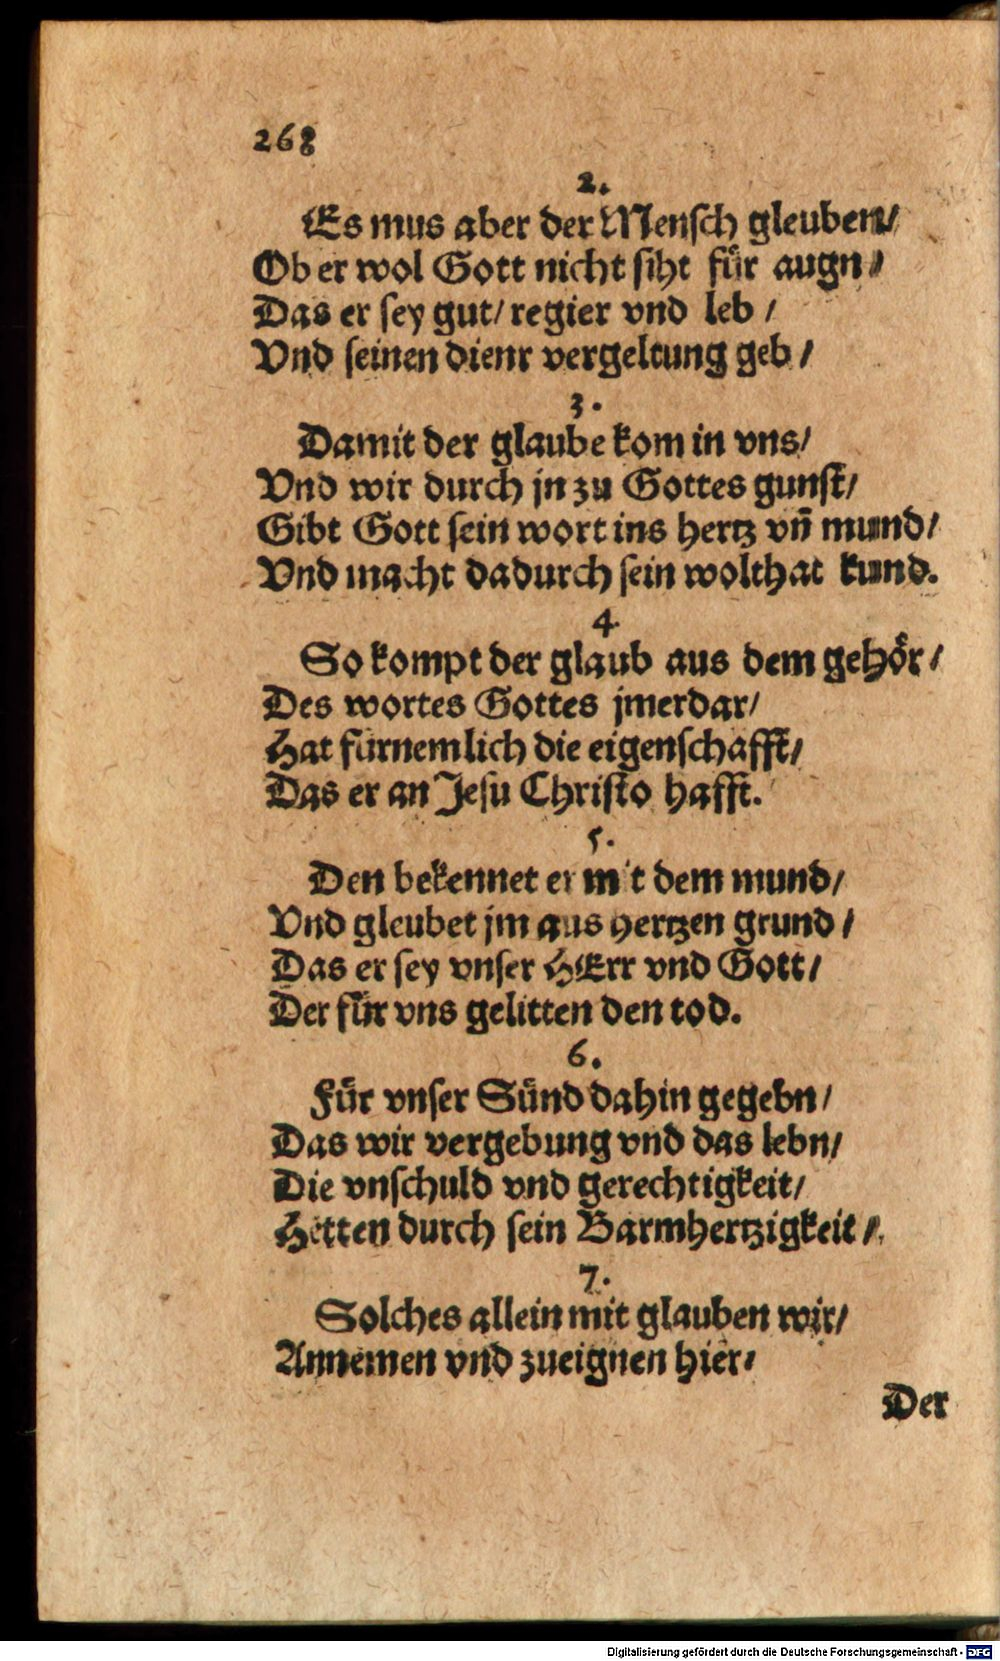 268
2.
Es mus aber der Mensch gleuben/
Ob er wol Gott nicht siht fuͤr augn/
Das er sey gut/ regier vnd leb/
Vnd seinen dienr vergeltung geb/
3.
Damit der glaube kom in vns/
Vnd wir durch jn zu Gottes gunst/
Gibt Gott sein wort ins hertz vn̄ mund/
Vnd macht dadurch sein wolthat kund.
4.
So kompt der glaub aus dem gehoͤr/
Des wortes Gottes jmerdar/
Hat furnemlich die eigenschafft/
Das er an Jesu Christo hafft.
5.
Den bekennet er mit dem mund/
Vnd gleubet jm aus hertzen grund/
Das er sey vnser HErr vnd Gott/
Der fuͤr vns gelitten den tod.
6.
Fuͤr vnser Suͤnd dahin gegebn/
Das wir vergebung vnd das lebn/
Die vnschuld vnd gerechtigkeit/
Hetten durch sein Barmhertzigkeit/.
7.
Solches allein mit glauben wir/
Annemen vnd zueignen hier/
Der
Digitalisierung gefördert durch die Deutsche Forschungsgemeinschaft - DFG